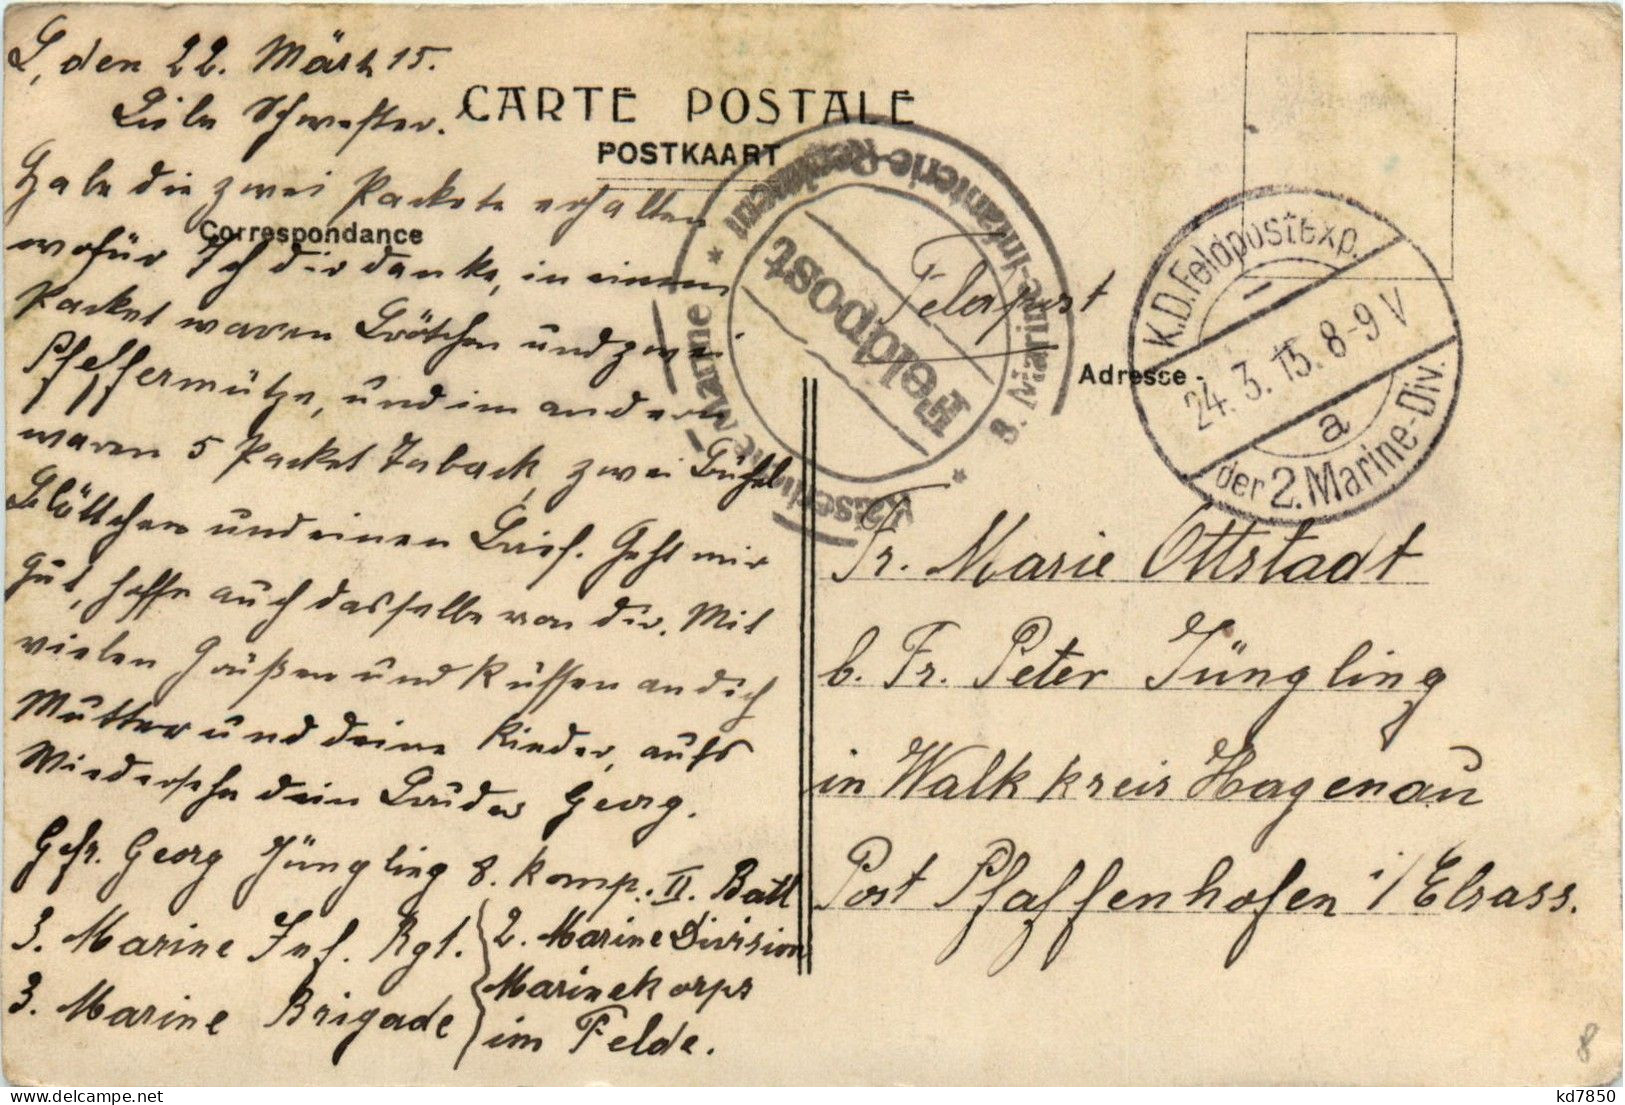 L, den 22. März 15.
Liebe Schwester.
Habe die zwei Packete erhalten
wofür Ich dir danke, in einem
Packet waren Brötchen und zwei
Pfeffermütze, und im andern
waren 5 Packet Taback, zwei Büchel
Blättchen und einen Brief. Geht mir
gut, hoffe auch dasselbe von dir. Mit
vielen Grüßen und Küssen an dich
Mutter und deine Kinder, aufs
Wiedersehn dein Bruder Georg.
Gefr. Georg Jüngling 8. Komp. II. Batl
3. Marine Inf. Rgt.
3. Marine Brigade
2. Marine Division
Marinekorps
im Felde.
CARTE POSTALE
POSTKAART
Correspondance
Adresse
Kaiserliche Marine
Feldpost
3. Marine-Infanterie-Regiment
Feldpost
K.D. Feldpostexp.
24. 3. 15. 8-9 V
a
der 2. Marine-Div.
Fr. Marie Ottstadt
b. Fr. Peter Jüngling
in Walk kreis Hagenau
Post Pfaffenhofen i/Elsass.
8
kd7850